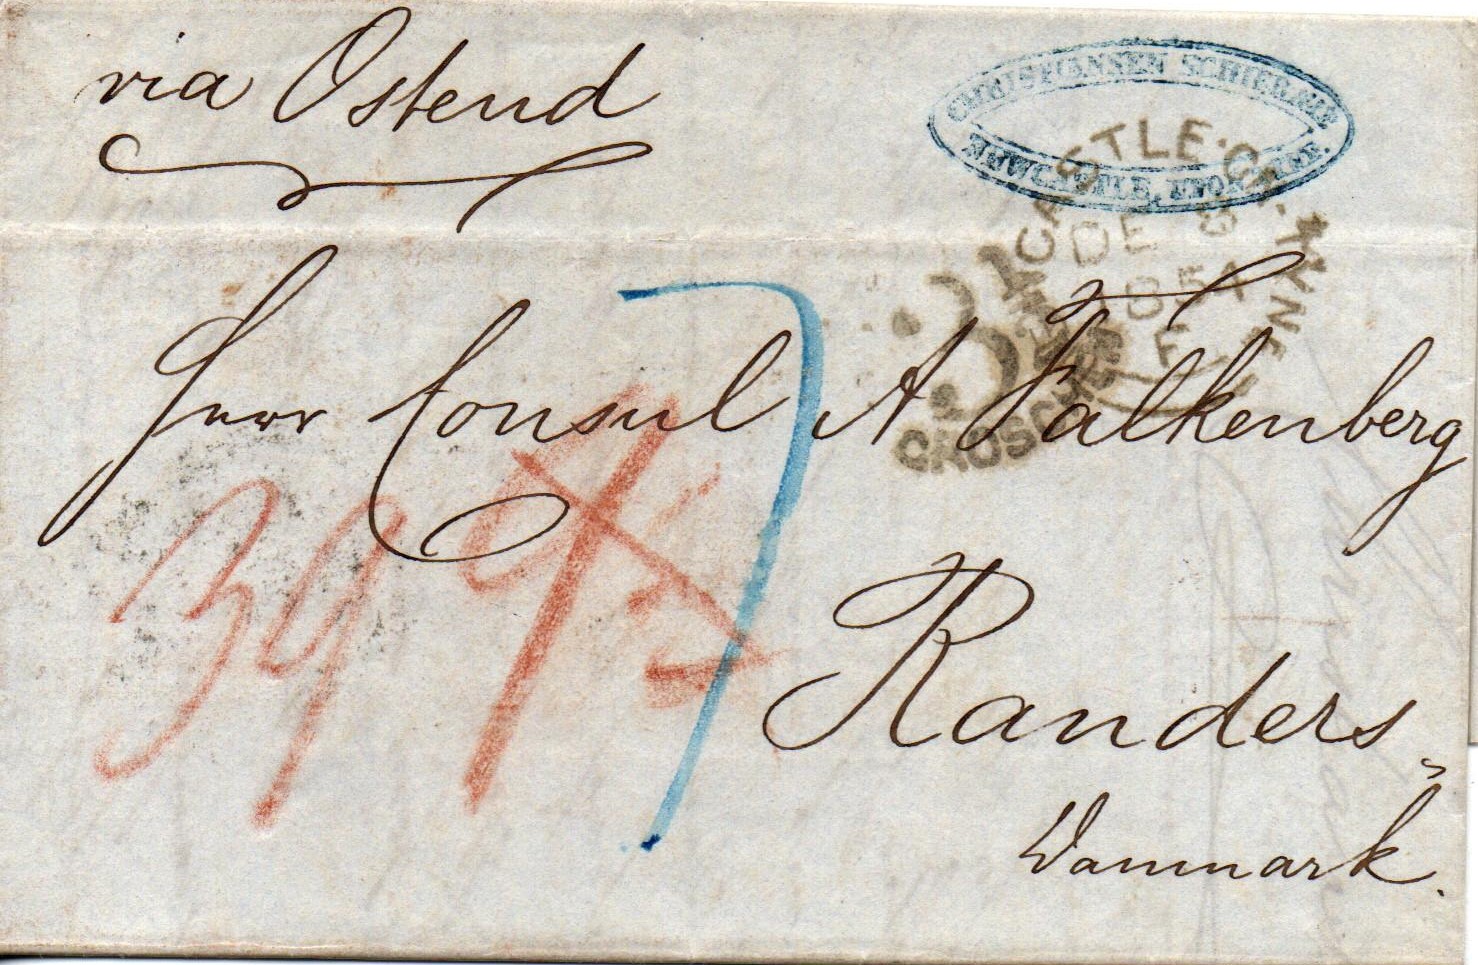 via Ostend
CHRISTIANSEN SCHIER & CIE
NEWCASTLE, UPON TYNE.
NEWCASTLE·ON·TYNE
DE 8
1854
F
GROSCHEN
7
Herr Consul A Falkenberg
39
Randers,
Danmark.